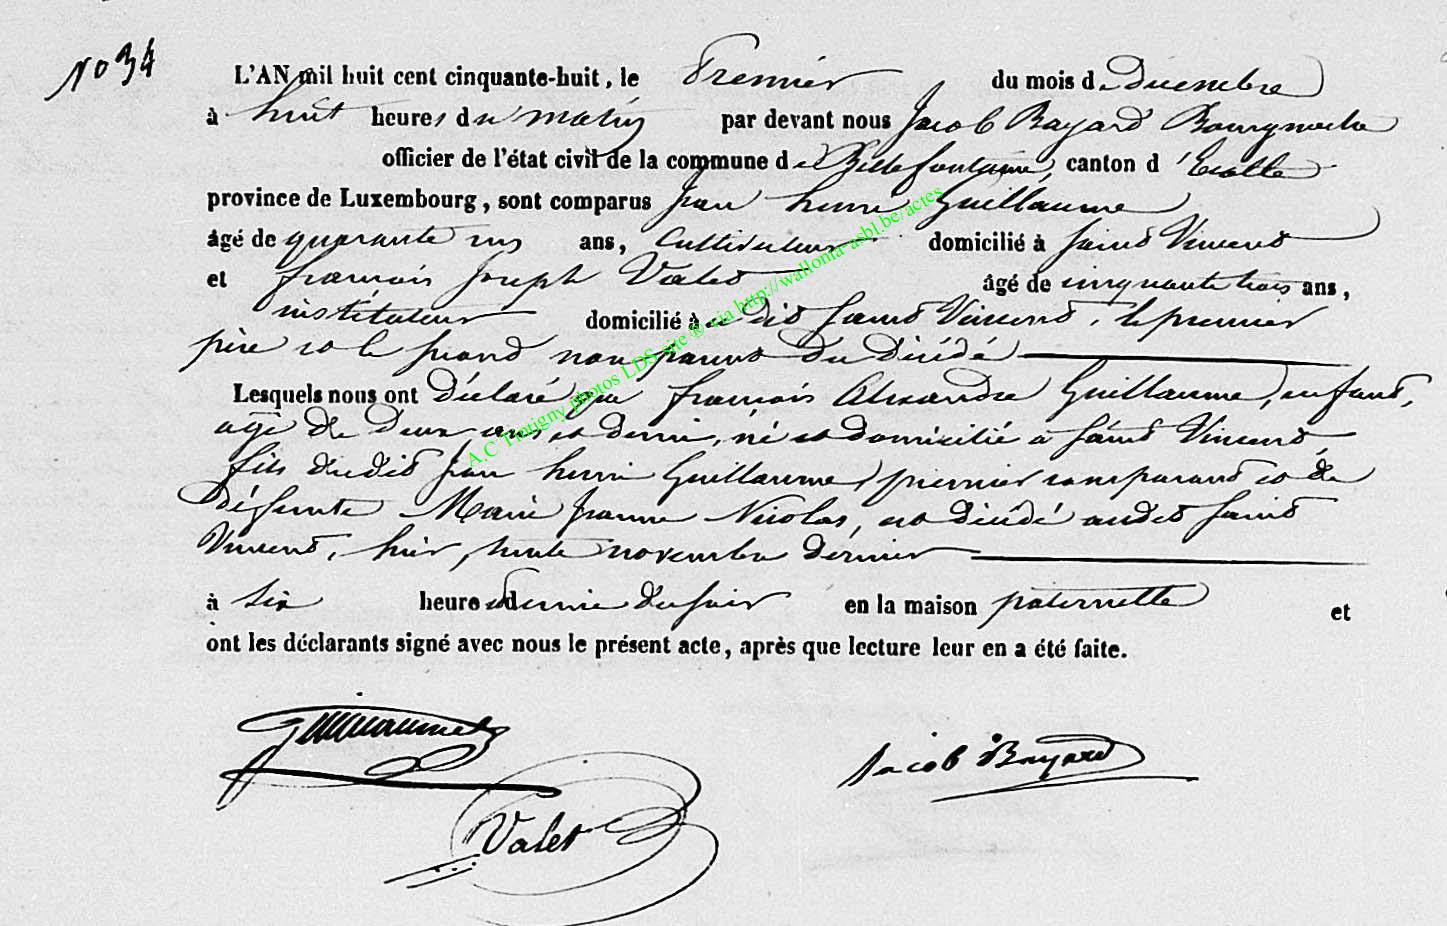 No 34
L'AN mil huit cent cinquante-huit, le Premier du mois de Décembre
à huit heures du matin par devant nous Jacob Bayard Bourgmestre
officier de l'état civil de la commune de Bellefontaine, canton d'Etalle
province de Luxembourg, sont comparus Jean henri Guillaume
âgé de quarante un ans, Cultivateur domicilié à Saint Vincent
et françois Joseph Valet âgé de cinquante trois ans,
instituteur domicilié à dit Saint Vincent, le premier
père et le second non parent du décédé
Lesquels nous ont Déclaré que françois Alexandre Guillaume, enfant,
agé de deux ans et demi, né et domicilié à Saint Vincent
fils dudit jean henri Guillaume, premier comparant et de
défunte Marie Jeanne Nicolas, est décédé audit Saint
Vincent, hier, trente novembre dernier
à six heures demie du soir en la maison paternelle et
ont les déclarants signé avec nous le présent acte, après que lecture leur en a été faite.
Guillaume
Jacob Bayard
Valet
A.C Tintigny photos LDS site ® via http://wallonia-asbl.be/actes